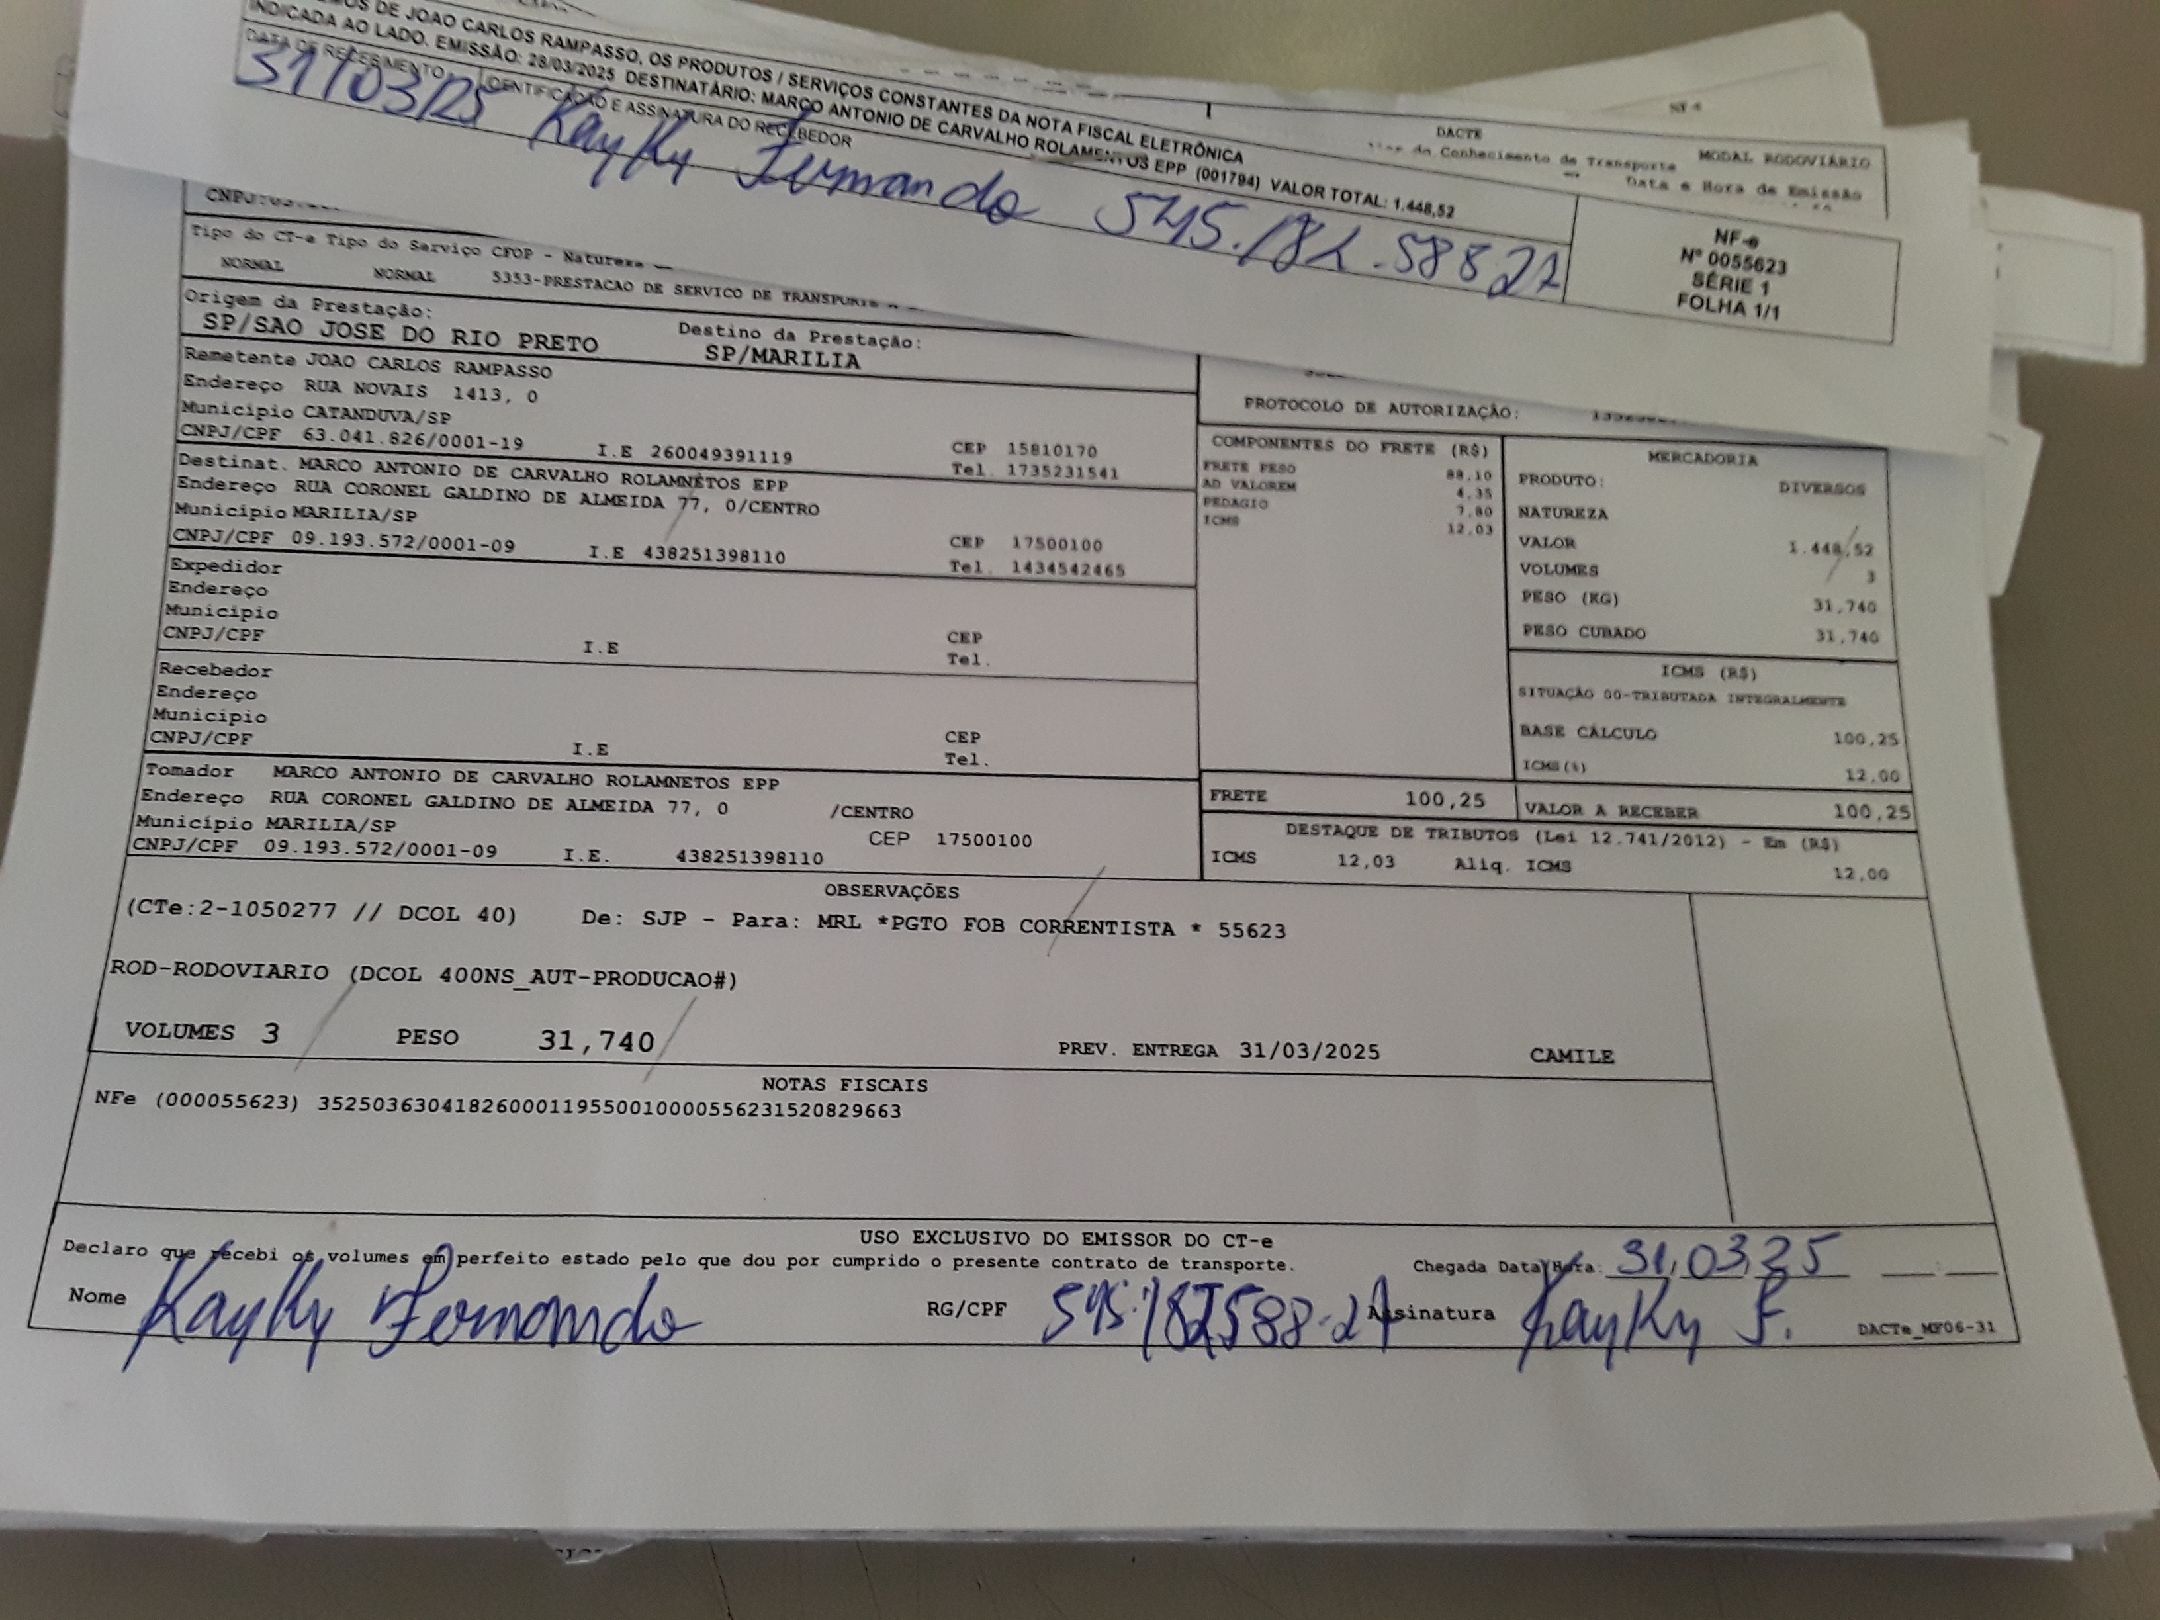 DE JOAO CARLOS RAMPASSO, OS PRODUTOS / SERVIÇOS CONSTANTES DA NOTA FISCAL ELETRÔNICA
INDICADA AO LADO. EMISSÃO: 28/03/2025 DESTINATÁRIO: MARCO ANTONIO DE CARVALHO ROLAMENTOS EPP (001794) VALOR TOTAL: 1.448,52
DATA DE RECEBIMENTO
IDENTIFICAÇÃO E ASSINATURA DO RECEBEDOR
31/03/25 Kayky Fernando
NF-e
Nº 0055623
SÉRIE 1
FOLHA 1/1
DACTE
do Conhecimento de Transporte
MODAL RODOVIÁRIO
Data e Hora de Emissão
Tipo do CT-e Tipo do Serviço CFOP - Natureza
NORMAL NORMAL 5353-PRESTACAO DE SERVICO DE TRANSPORTE
Origem da Prestação:
SP/SAO JOSE DO RIO PRETO
Destino da Prestação:
SP/MARILIA
Remetente JOAO CARLOS RAMPASSO
Endereço RUA NOVAIS 1413, 0
Município CATANDUVA/SP
CNPJ/CPF 63.041.826/0001-19 I.E 260049391119
CEP 15810170
Tel. 1735231541
Destinat. MARCO ANTONIO DE CARVALHO ROLAMNETOS EPP
Endereço RUA CORONEL GALDINO DE ALMEIDA 77, 0/CENTRO
Município MARILIA/SP
CNPJ/CPF 09.193.572/0001-09 I.E 438251398110
CEP 17500100
Tel. 1434542465
Expedidor
Endereço
Município
CNPJ/CPF I.E
CEP
Tel.
Recebedor
Endereço
Município
CNPJ/CPF I.E
CEP
Tel.
Tomador MARCO ANTONIO DE CARVALHO ROLAMNETOS EPP
Endereço RUA CORONEL GALDINO DE ALMEIDA 77, 0 /CENTRO
Município MARILIA/SP CEP 17500100
CNPJ/CPF 09.193.572/0001-09 I.E. 438251398110
PROTOCOLO DE AUTORIZAÇÃO:
COMPONENTES DO FRETE (R$)
FRETE PESO 88,10
AD VALOREM 4,35
PEDAGIO 7,80
ICMS 12,03
MERCADORIA
PRODUTO: DIVERSOS
NATUREZA
VALOR 1.448,52
VOLUMES 3
PESO (KG) 31,740
PESO CUBADO 31,740
ICMS (R$)
SITUAÇÃO 00-TRIBUTADA INTEGRALMENTE
BASE CÁLCULO 100,25
ICMS(%) 12,00
FRETE 100,25
VALOR A RECEBER 100,25
DESTAQUE DE TRIBUTOS (Lei 12.741/2012) - Em (R$)
ICMS 12,03 Aliq. ICMS 12,00
OBSERVAÇÕES
(CTe:2-1050277 // DCOL 40) De: SJP - Para: MRL *PGTO FOB CORRENTISTA * 55623
ROD-RODOVIARIO (DCOL 400NS_AUT-PRODUCAO#)
VOLUMES 3 PESO 31,740
PREV. ENTREGA 31/03/2025 CAMILE
NOTAS FISCAIS
NFe (000055623) 35250363041826000119550010000556231520829663
USO EXCLUSIVO DO EMISSOR DO CT-e
Declaro que recebi os volumes em perfeito estado pelo que dou por cumprido o presente contrato de transporte.
Chegada Data/Hora: 31,03,25
Nome Kayky Fernando
RG/CPF
Assinatura Kayky F.
DACTe_MF06-31